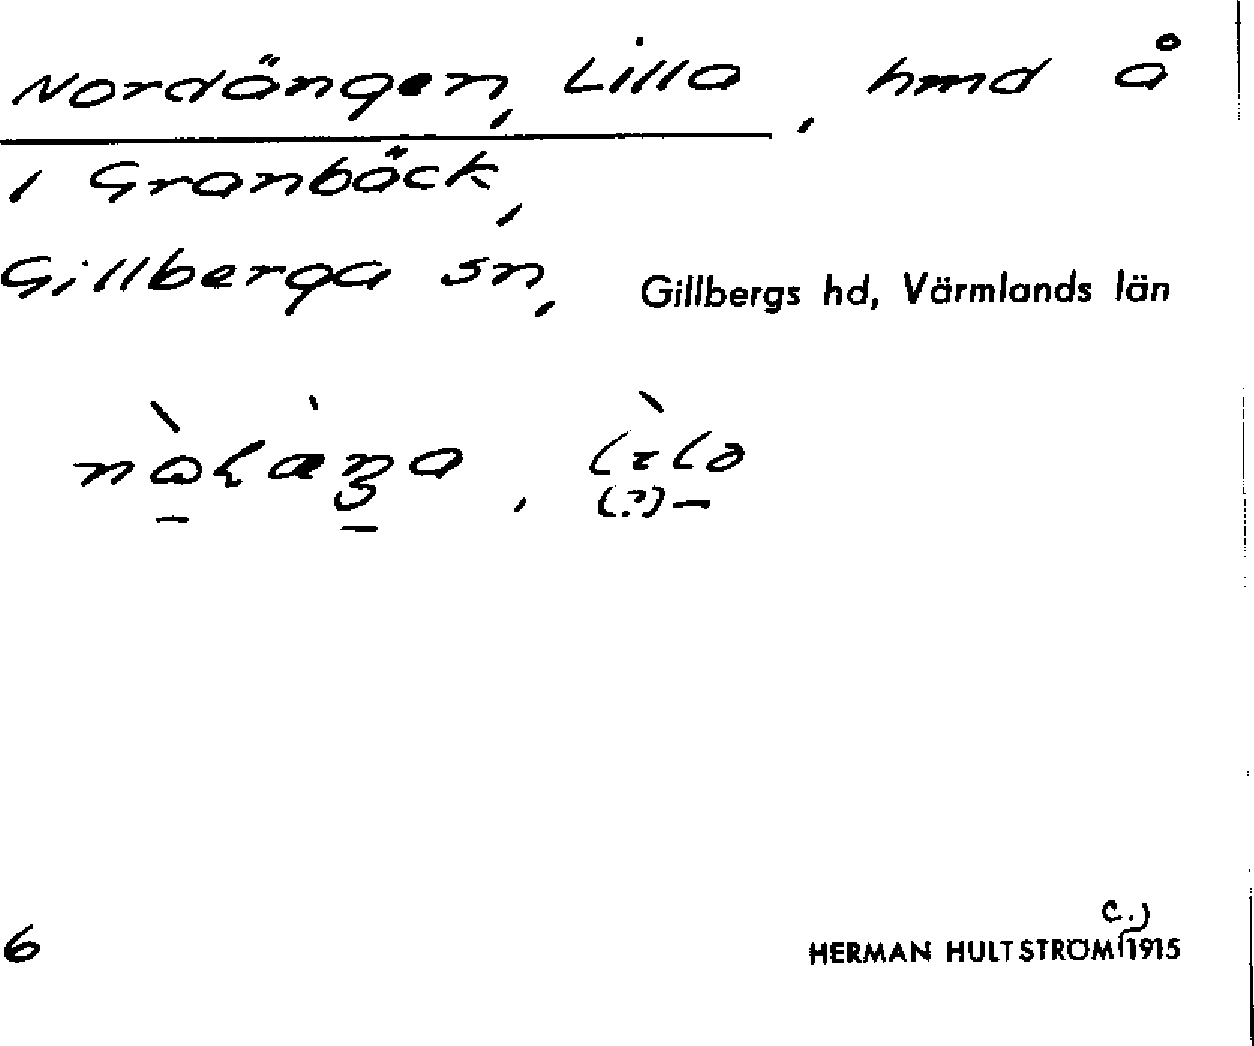 Nordängen, Lilla, hmd å
i Granbäck,
Gillberga sn, Gillbergs hd, Värmlands län
6
C.)
HERMAN HULTSTRÖM 1915